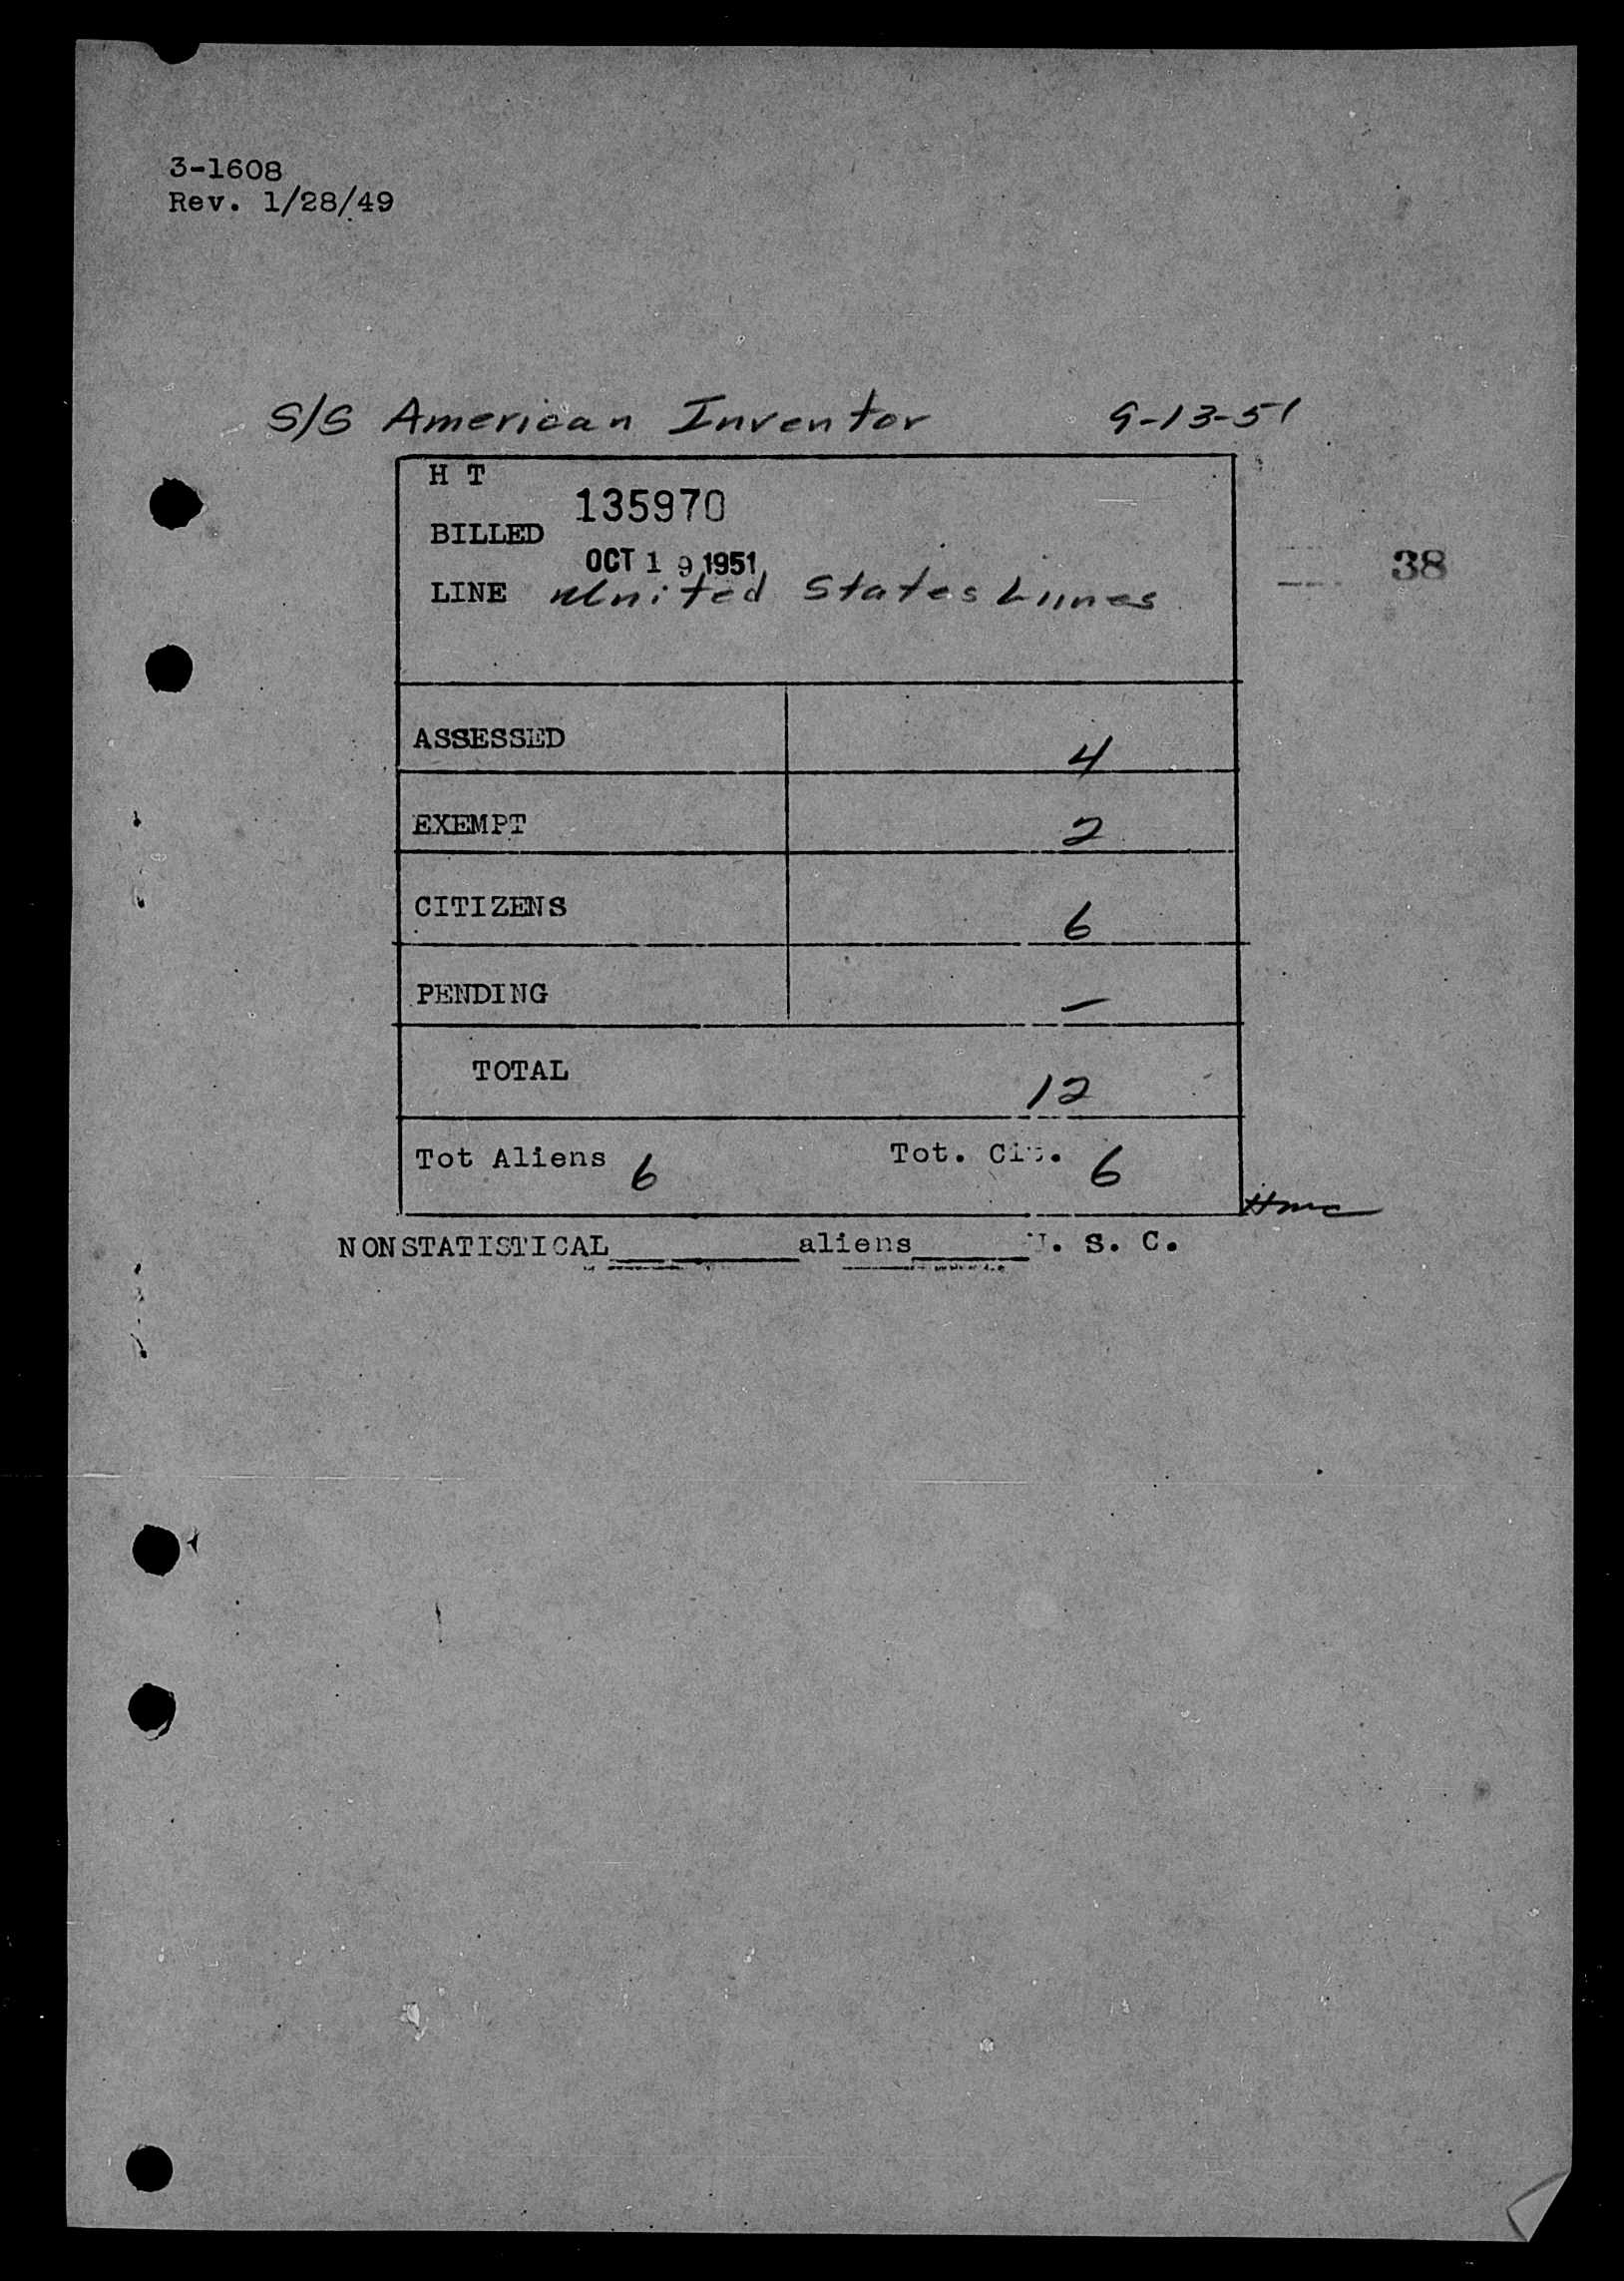 3-1608
Rev. 1/28/49
S/S American Inventor 9-13-51
H T
135970
BILLED
OCT 19 1951
LINE United States Liines
38
ASSESSED 4
EXEMPT 2
CITIZENS 6
PENDING —
TOTAL 12
Tot Aliens 6 Tot. Cit. 6
NONSTATISTICAL______aliens______U. S. C.